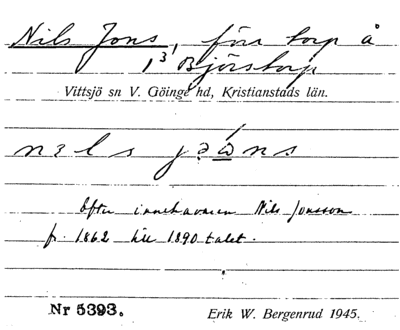 Nils Jons, förr torp å
1,3 Björstorp
Vittsjö sn V. Göinge hd, Kristianstads län.
nels
Efter innehavaren Nils Jonsson
fr. 1862 till 1890 talet.
Nr 5393. Erik W. Bergenrud 1945.